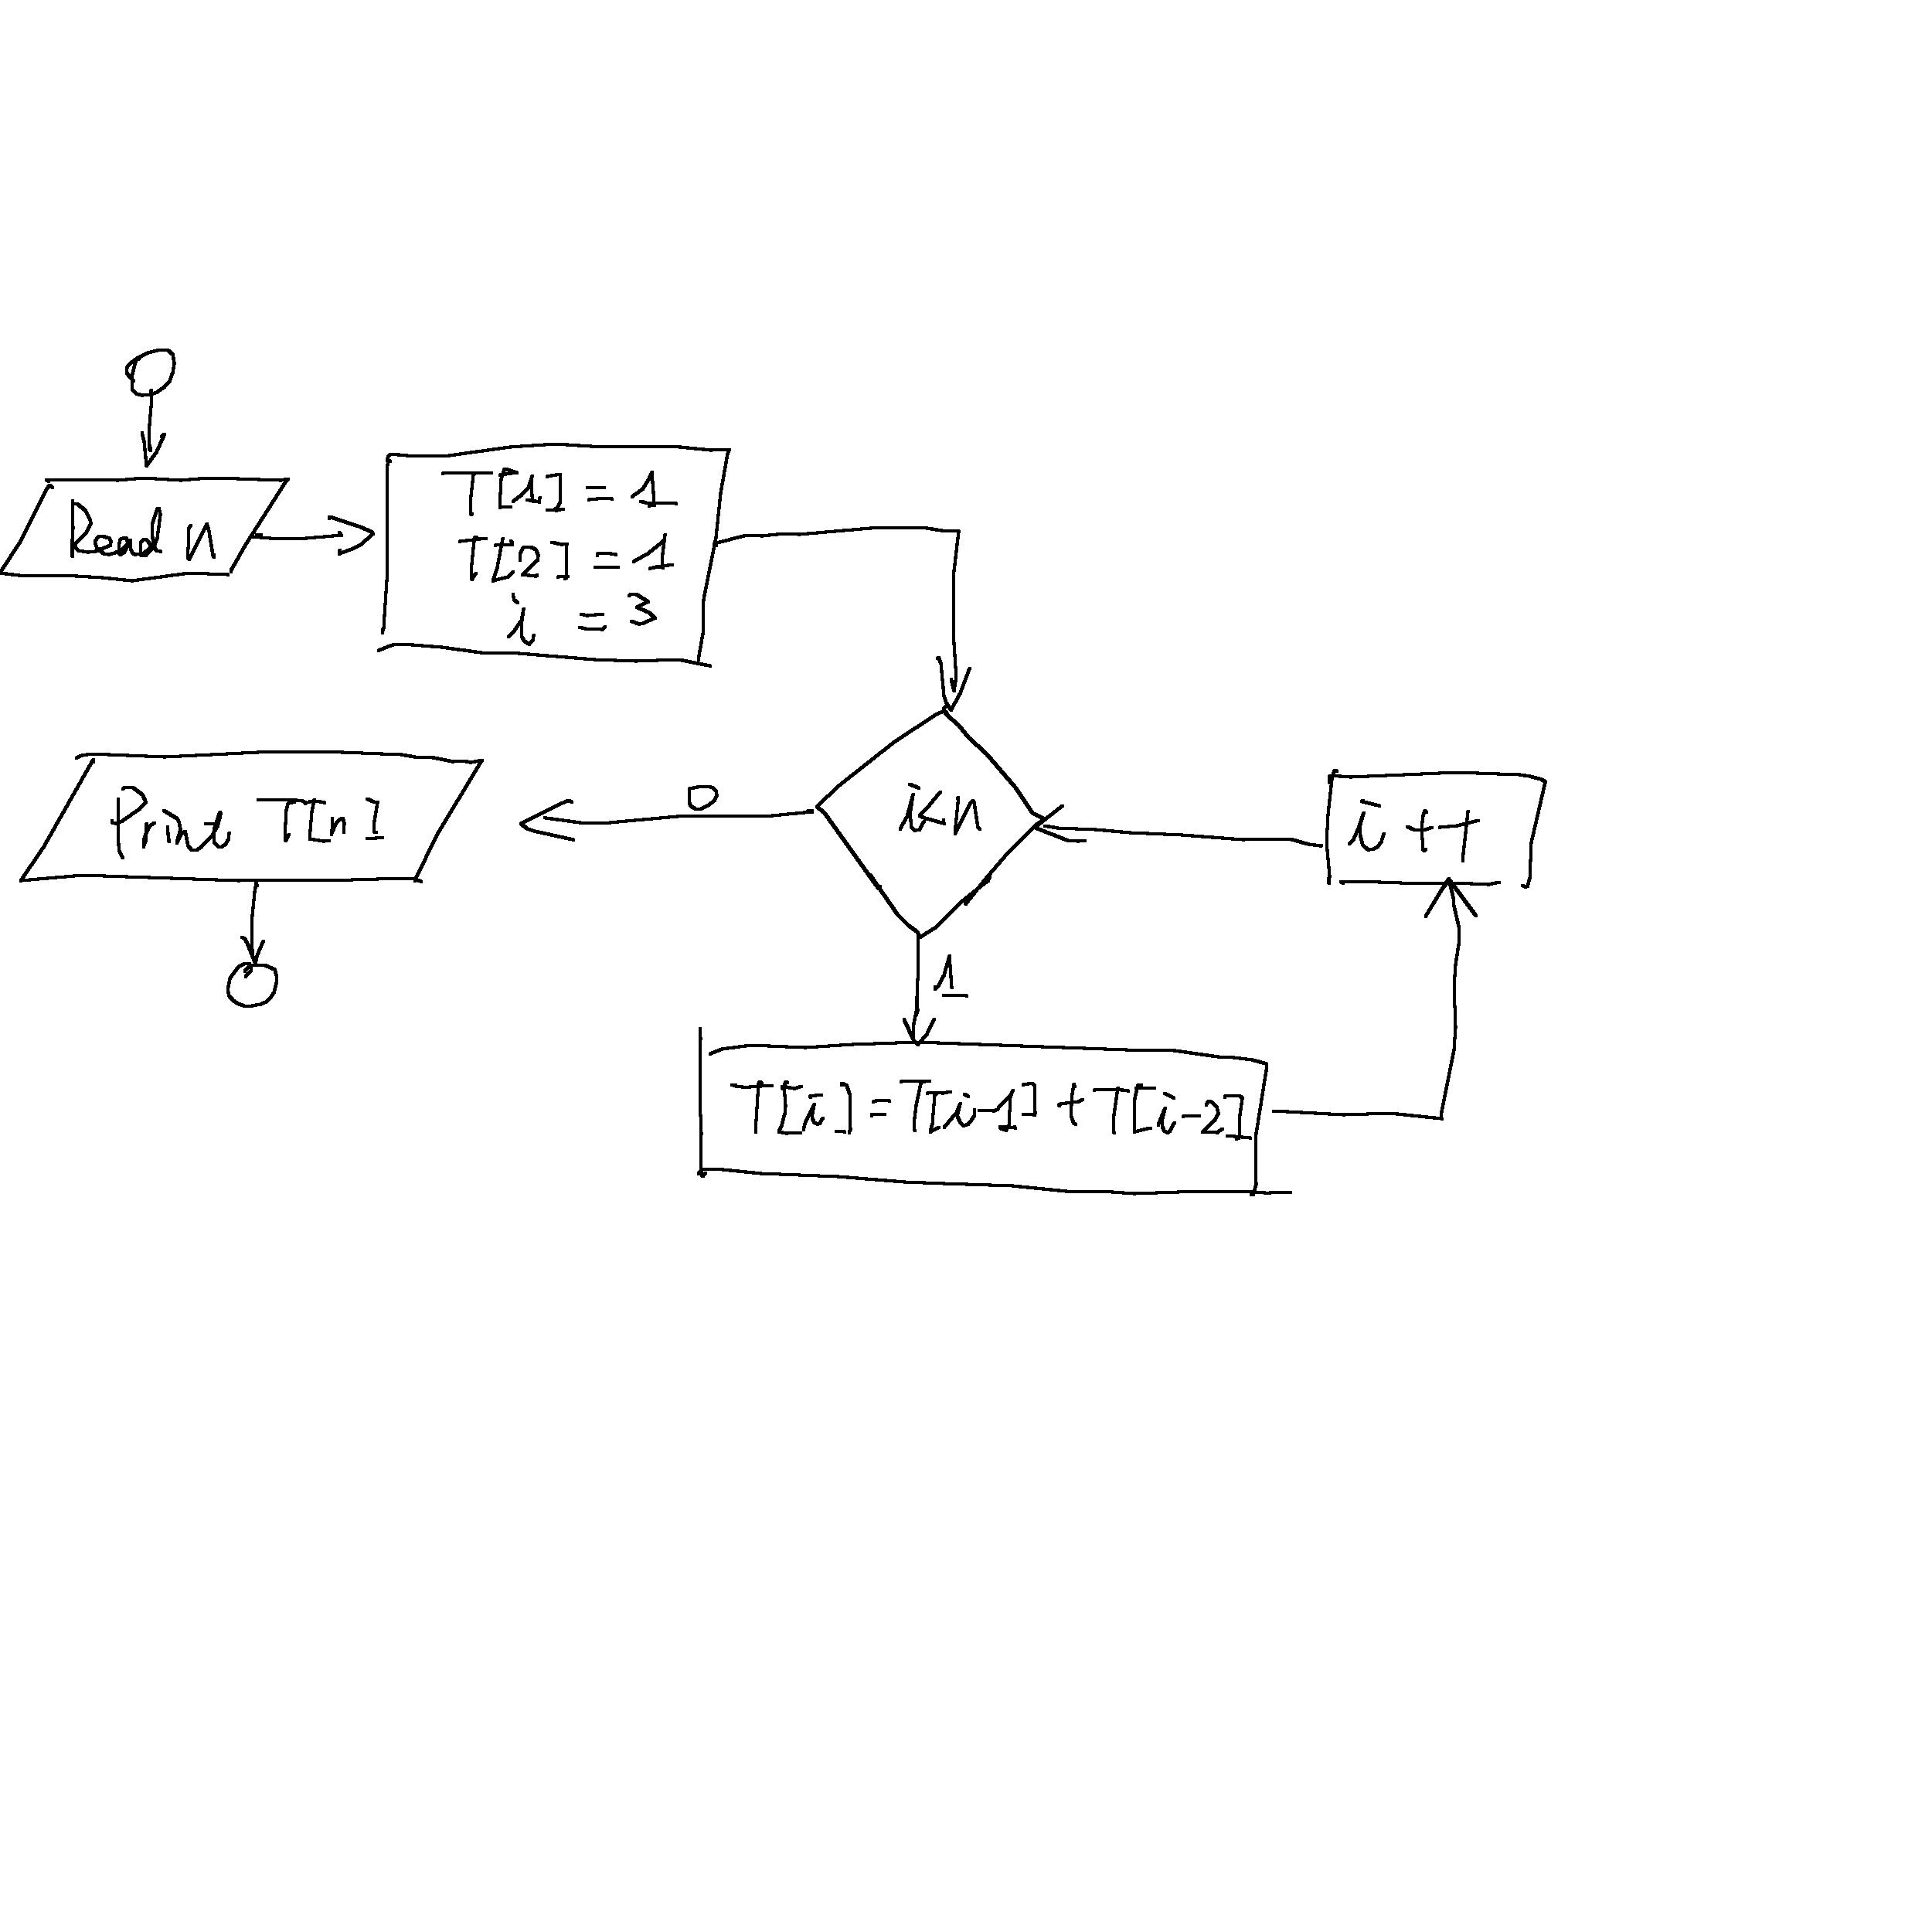 Read n
T[1] = 1
T[2] = 1
i = 3
i<n
0
Print T[n]
i++
1
T[i] = T[i-1] + T[i-2]